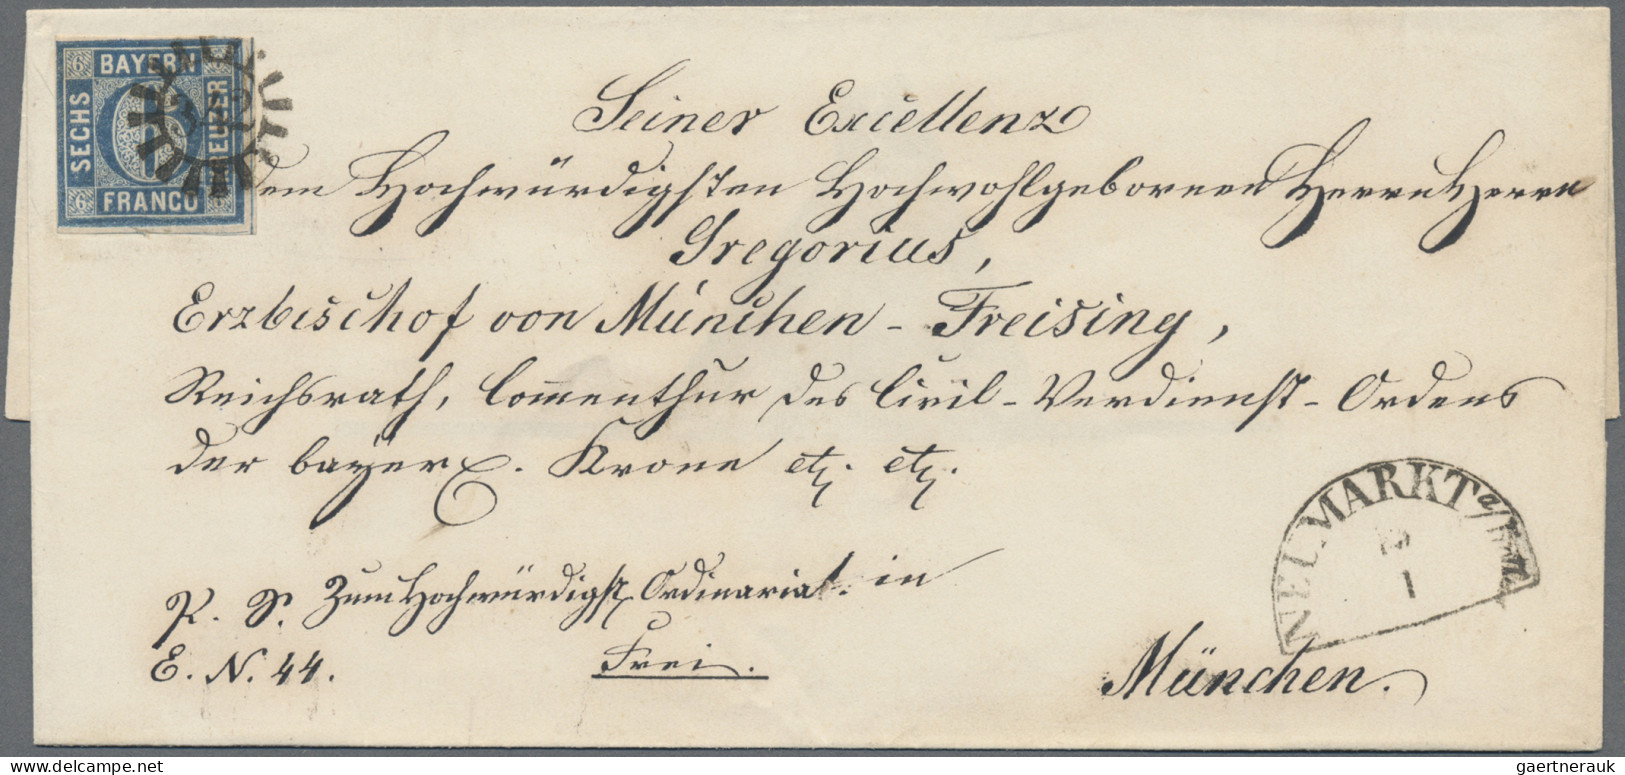 6 BAYERN 6
SECHS
KREUZER
6 FRANCO 6
Seiner Excellenz
dem Hochwürdigsten Hochwohlgebornen Herrn Herrn
Gregorius,
Erzbischof von München - Freising,
Reichsrath, Commenthur des Civil-Verdienst-Ordens
der bayer. Krone etz. etz.
NEUMARKT a/Rott.
1
P. S. Zum Hochwürdigst. Ordinariat. in
E. N. 44.
Frei.
München.
www.delcampe.net
gaertnerauk